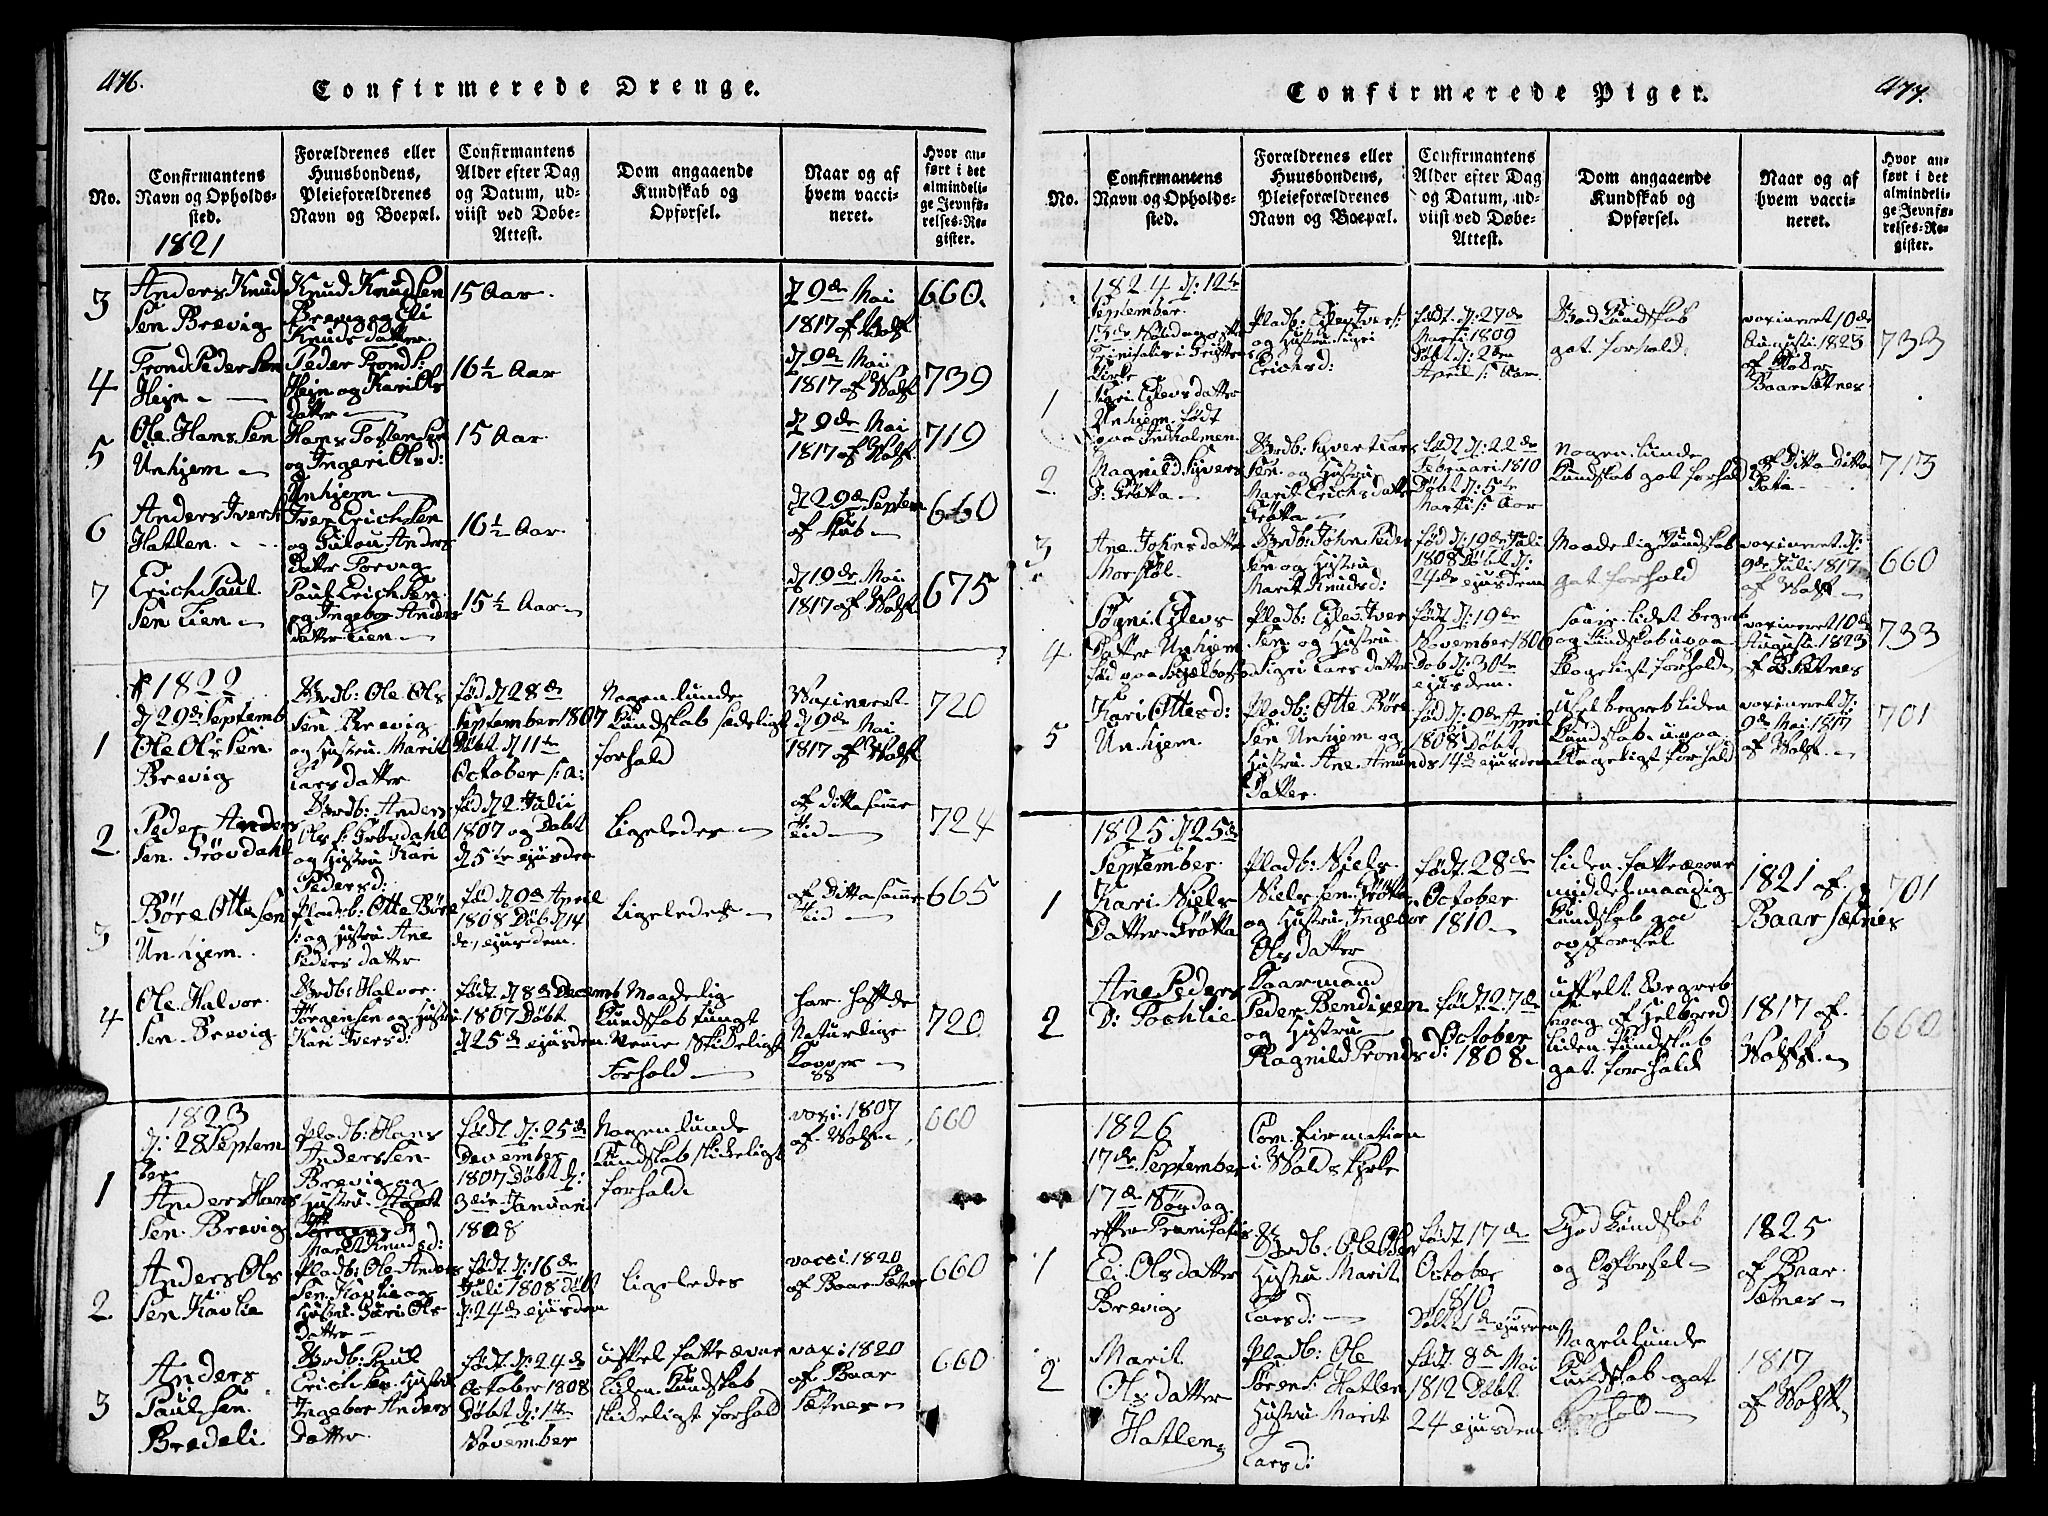 476.
Confirmerede Drenge.
No.
Confirmantens
Navn og Opholds-
sted.
1821
Forældrenes eller
Huusbondens,
Pleieforældrenes
Navn og Boepæl.
Confirmantens
Alder efter Dag
og Datum, ud-
viist ved Døbe-
Attest.
Dom angaaende
Kundskab og
Opførsel.
Naar og af
hvem vacci-
neret.
Hvor an-
ført i det
almindeli-
ge Jevnfø-
relses-Re-
gister.
3
Anders Knud
Sen Brevig
Knud KnudSen
Brevig og Eli
Knudsdatter
15 Aar.
9de Mai
1817 af Wolf
660.
4
Trond PederSen
Hejn
Peder Trond S:
Hejn og Kari Ols
datter
16½ Aar
9de Mai
1817 af Wolf
739
5
Ole HansSen
Unhjem
Hans TostenSen
og Ingeri Olsd:
Unhjem
15 Aar
9de Mai
1817 af Wolf
719
6
Anders Ivers
Hatlen
Iver ErichSen
og Anders
datter Torvig
16½ Aar
29de Septem
af Stub
660
7
Erich Paul
Sen Lien
Paul ErichSen
og Ingebor Anders
datter Lien
15½ Aar
19de Mai
1817 af Wolf
675
1822
d 29de Septemb
1
Ole OlsSen
Brevig
Brdb: Ole Ols
Sen Brevig
og Hustru Marit
Larsdatter
fød d 28de
September 1807
Døbt d 11te
October s: a:
Nogenlunde
Kundskab sædeligt
forhold
Waxineret
d 9de Mai
1817 af Wolf
720
2.
Peder Anders
Sen Grøvdahl
Brdb: Anders
Ols S: Grøvdahl
og Hustru Kari
Pedersd:
fød d 2 Julii
1807 og Døbt
d 5te ejusdem
Ligeledes
af ditto samme
tid
724
3
Børe OtteSen
Unhjem
Pladsb: Otte Børe
S: og Hustru Ane
Pedersdatter
fød d 9de April
1808 Døbt d 14
de, ejusdem.
Ligeledes
af Ditto samme
tid
665
4
Ole Halvor
Sen Brevig
Brdb: Halvor
JørgenSen og Hustru
Kari Iversd:
født d 8de Decemb
1807 Døbt
d 25de ejusdem
Maadelig
Kundskab tungt
Neme Skikeligt
Forhold
har haft de
Naturlige
Kopper
720
1823
d: 28 Septem
ber
1
Anders Hans
Sen Brevig
Pladb: Hans
AndersSen
Brevig og
Hustru
Marit Knudsd:
født d: 25de
December
1807 Døbt d:
3die Januari
1808
Nogenlunde
Kundskab skikeligt
forhold
vaxi: 1807
af Wolf
660
2.
Anders Ols
Sen Kavlie
Pladb: Ole Anders
Sen Kavlie og
Hustru Guri Ols
datter
født d: 16de
Juli 1808 Døbt
d: 24de ejusdem
Ligeledes
vacci. 1820
af Baar Sætnes
660
3
Anders
PaulSen
Bredeli
Brdb: Paul
ErichSen Hustru
Ingebor Anders
datter
født d: 24de
October 1808
Døbt d: 1te
November
uffel fatte ævne
Liden Kundskab
skikeligt forhold
vaxi: 1820
af Baar
Sætnes
660
477.
Confirmerede Piger.
No.
Confirmantens
Navn og Opholds-
sted.
Forældrenes eller
Huusbondens,
Pleieforældrenes
Navn og Boepæl.
Confirmantens
Alder efter Dag
og Datum, ud-
viist ved Døbe-
Attest.
Dom angaaende
Kundskab og
Opførsel.
Naar og af
hvem vacci-
neret.
Hvor an-
ført i det
almindeli-
ge Jevnfø-
relses-Re-
gister.
1824 d: 12te
September.
13de Søndag efter
Trinitatis i Grytten
Kirke
1
Sigri Ejlevsdatter
Unhjem født
paa Indholmen
Pladb: Ejlev Ivers:
og Hustru Sigri
Erichsd:
født d: 27de
Marti 1809
Døbt d: 2den
April s: Aar
God Kundskab
got forhold
vaxineret 10de
Augusti 1823
af Peder
Baar Sætnes
733
2
Magnild Syvers
D: Grøtta
Brdb: Syvert Lars
Sen og Hustru
Marit Erichsdatter
Grøtta
født d: 22de
Februari 1810
Døbt d: 5te
Marti s: Aar
Nogenlunde
Kundskab got forhold
af Ditto Ditto
Dato
713
3
Ane Johnsdatter
Morstøl
Brdb: John Peder
Sen og Hustru
Marit Knudsd:
fød d: 19de Juli
1808 Døbt d:
24de ejusdem
Maadelig Kundskab
got forhold
vaxineret d:
9de Juli 1817
af Wolf
660
4
Søgni Ejlevs
datter Unhjem
Pladb: Ejlev Iver
Sen og Hustru
Sigri Larsdatter
født d: 19de
November 1806
Døb d: 30te
ejusdem.
lidet begreb
og Kundskab upaa
klageligt forhold
vaxineret 10de
Augusti 1823
af B Sætnes
733
5
Kari Ottesd:
Unhjem
Pladb: Otte Børe
Sen Unhjem og
Hustru Ane Amunds
Datter
fød d: 9de April
1808 Døbt
14de ejusdem
Usel begreb liden
Kundskab upaa
Klageligt forhold
vaxineret d:
9de Mai 1817
af Wolf
701
1825 d 25de
September
1
Kari Niels
Datter Grøtta
Pladb: Niels
NielsSen Grøtta
og Hustru Ingebor
Olsdatter
født 28de
October
1810
Liden fatteævne
middelmaadig
Kundskab god
opførsel
1821 af
Baar Sætnes
701
2
Ane Peders
D: Sochlie
Kaarmand
Peder Bendixen
og Hustru
Ragnild Tronds d:
født 27de
October
1808
uffelt Begreb
svag af Helbred
liden Kundskab
got forhold
1817 af
Wolff
660
1826
17de September
17de Søndag
efter Trinitatis
Comfirmation
i Wolds Kirke
1
Eli Olsdatter
Brevig
Brdb: Ole Ols
Hustru Marit
Larsd:
født 17de
October
1810
Døbt ejusdem
God Kundskab
og Opførsel
1825
af Baar
Sætnes
2
Marit
Olsdatter
Hatlen
Pladb: Ole
SørenS: Hatlen
Hustru Marit
Larsd:
født 8de Mai
1812 Døbt
24 ejusdem
Nogenlunde
Kundskab got
Forhold
1817
af Wolff